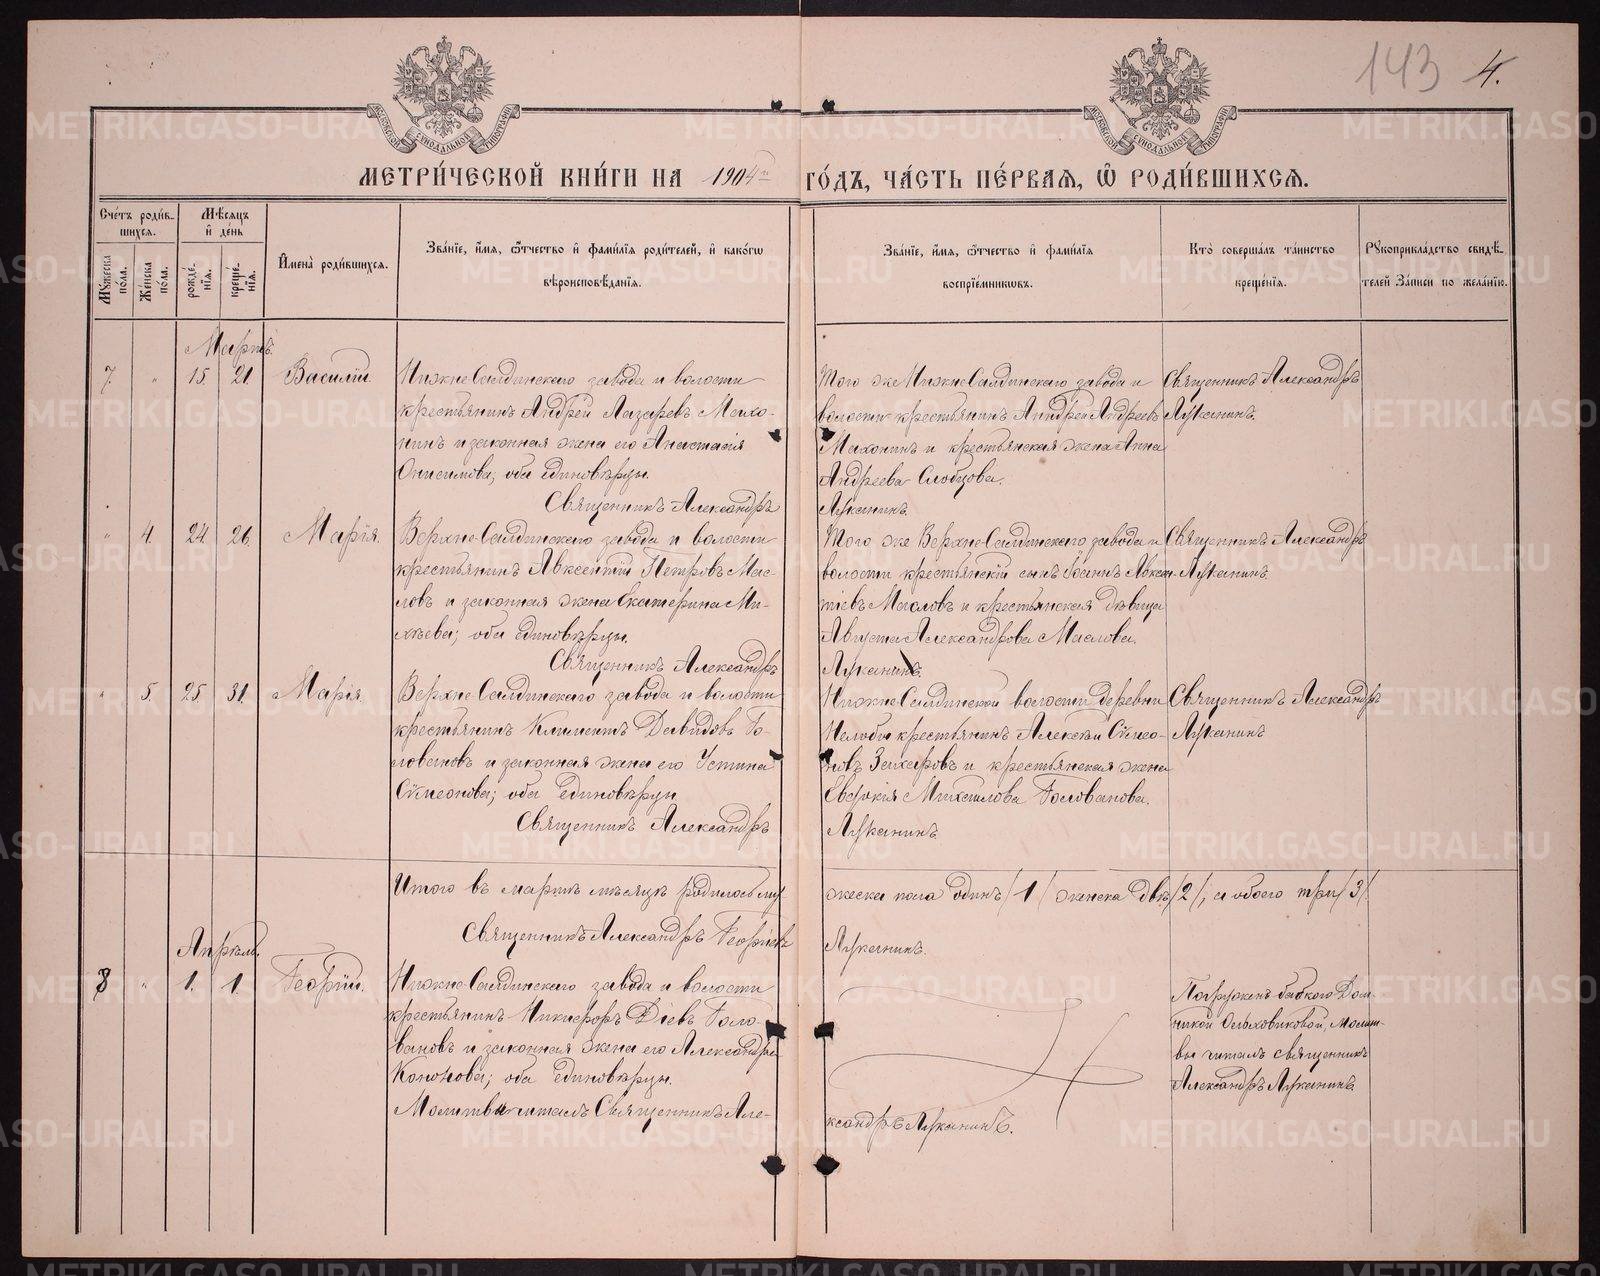 143 4.
МЕТРИ́ЧЕСКОЙ КНИ́ГИ НА 1904й ГО́ДЪ, ЧА́СТЬ ПЕ́РВАЯ, Ѡ҆ РОДИ́ВШИХСЯ.
Сче́тъ роди́в-
шихся.
Му́жеска по́ла.
Же́нска по́ла.
Мѣ́сяцъ
и҆ де́нь
рожде́нїя.
креще́нїя.
И҆мена̀ роди́вшихся.
Зва́нїе, и҆́мя, ѻ҆́тчество и҆ фами́лїя роди́телей, и҆ како́гѡ
вѣроисповѣ́данїя.
Зва́нїе, и҆́мя, ѻ҆́тчество и҆ фами́лїя
воспрїе́мниковъ.
Кто̀ соверша́лъ та́инство
креще́нїя.
Рꙋкоприкла́дство свидѣ́-
телей За́писи по жела́нїю.
Мартъ.
7. " 15. 21. Василій
Нижне-Салдинскаго завода и волости
крестьянинъ Андрей Лазаревъ Махо-
нинъ и законная жена его Анастасія
Онисимова; оба единовѣрцы.
Священникъ Александръ
Того же Нижне-Салдинскаго завода и
волости крестьянинъ Андрей Андреевъ
Махонинъ и крестьянская жена Анна
Андреева Слобцова.
Луканинъ.
Священникъ Александръ
Луканинъ.
" 4. 24 26. Марія.
Верхне-Салдинскаго завода и волости
крестьянинъ Авксентій Петровъ Мас-
ловъ и законная жена Екатерина Ми-
хѣева; оба единовѣрцы.
Священникъ Александръ
Того же Верхне-Салдинскаго завода и
волости крестьянскій сынъ Іоаннъ Авксен-
тіевъ Масловъ и крестьянская дѣвица
Августа Александрова Маслова.
Луканинъ.
Священникъ Александръ
Луканинъ.
" 5. 25. 31. Марія.
Верхне-Салдинскаго завода и волости
крестьянинъ Климентъ Давидовъ Го-
ловановъ и законная жена его Устина
Сѵмеонова; оба единовѣрцы
Священникъ Александръ
Нижне-Салдинской волости деревни
Нелобы крестьянинъ Алексѣй Сѵмео-
новъ Захаровъ и крестьянская жена
Евдокія Михаилова Голованова.
Луканинъ
Священникъ Александръ
Луканинъ
Итого въ мартѣ мѣсяцѣ родилось му-
жеска пола одинъ /1/ женска двѣ /2/, а обоего три /3/.
Священникъ Александръ Георгіевъ
Луканинъ.
Апрѣль.
8 " 1. 1. Георгій.
Нижне-Салдинскаго завода и волости
крестьянинъ Никифоръ Діевъ Голо-
вановъ и законная жена его Александра
Кононова; оба единовѣрцы.
Молитвы читалъ Священникъ Але-
ксандръ Луканинъ.
Погруженъ бабкою Дом-
никой Ольховиковой, молит-
вы читалъ священникъ
Александръ Луканинъ
METRIKI.GASO-URAL.RU